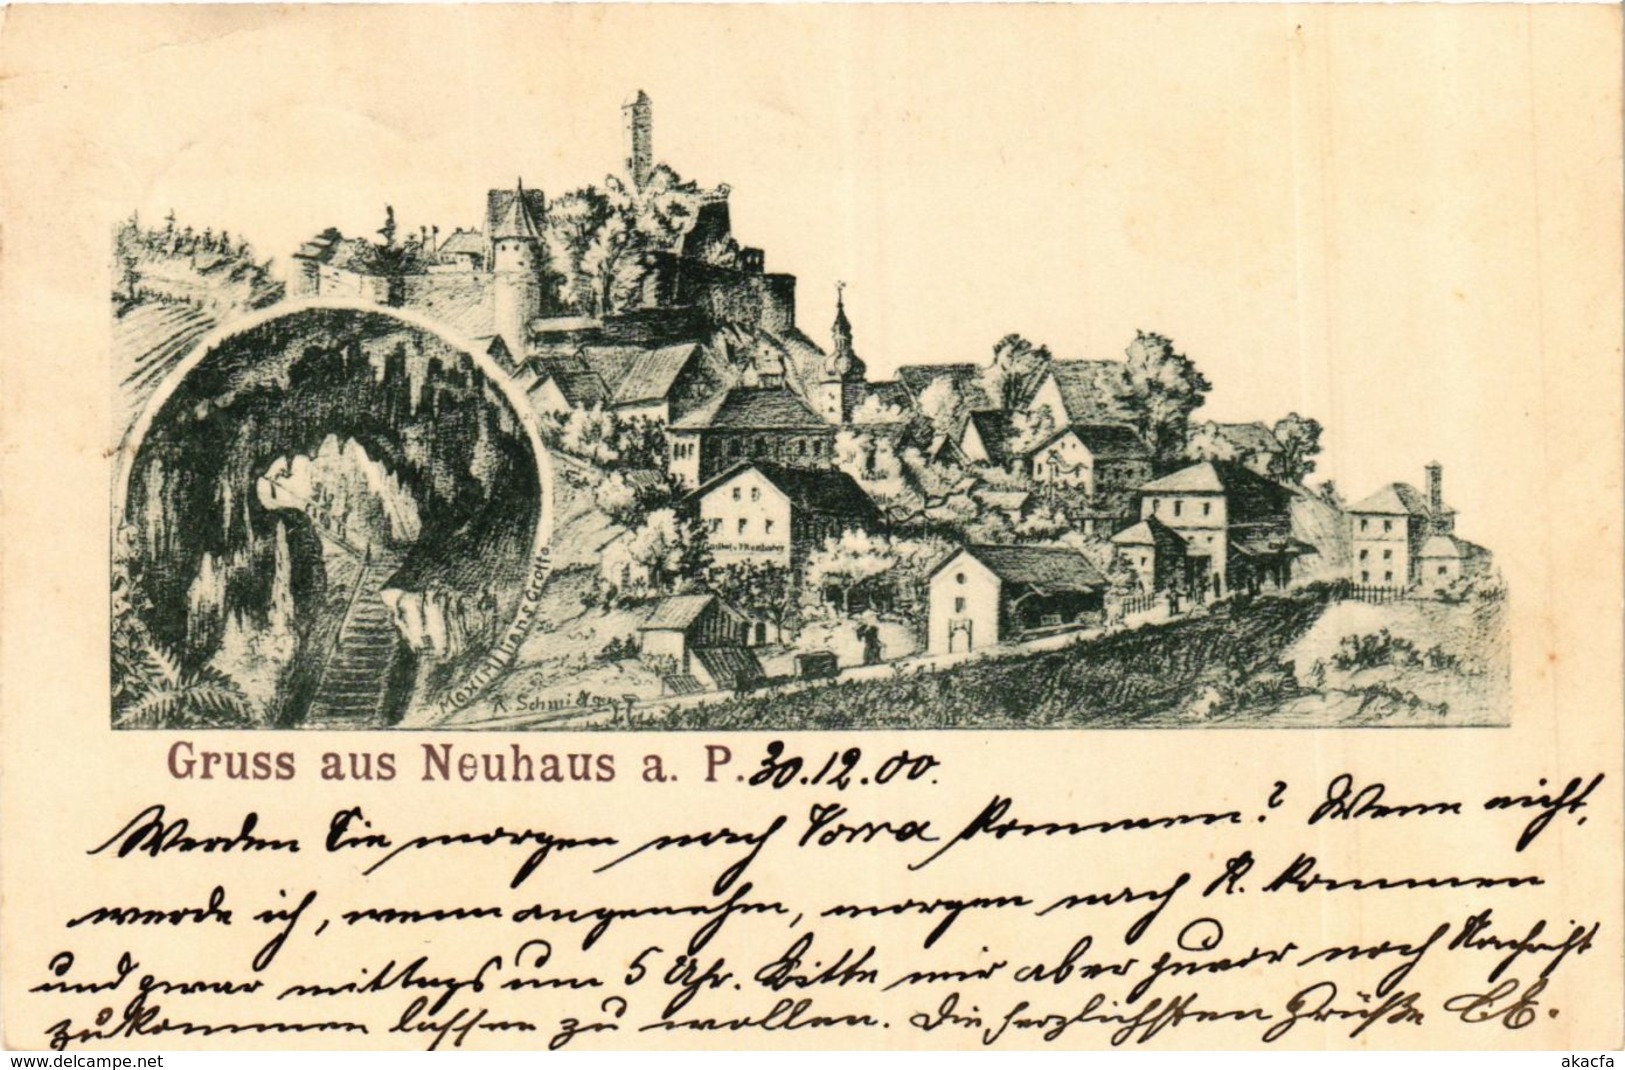 Maximilians Grotto
A. Schmidt
Gruss aus Neuhaus a. P. 30.12.00.
Werden Sie morgen nach Vorra kommen? Wenn nicht,
werde ich, wenn angenehm, morgen nach R. kommen
und zwar mittags um 5 Uhr. Bitte mir aber zuvor noch Nachricht
zukommen lassen zu wollen. Die herzlichsten Grüße
akacfa